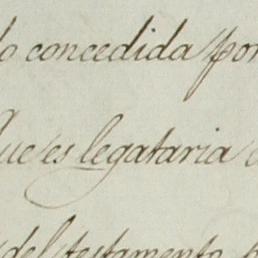 concedida por
que es legataria
del testamento